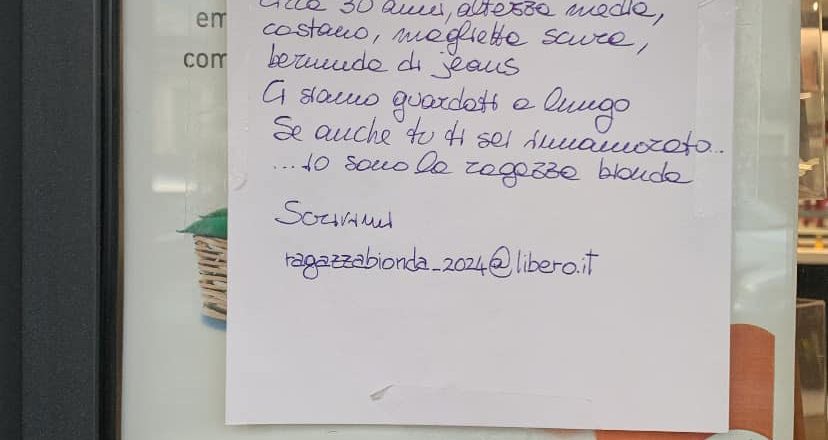 em
com
circa 30 anni, altezza media,
castano, maglietta scura,
bermuda di jeans
Ci siamo guardati a lungo
Se anche tu ti sei innamorato..
...io sono la ragazza bionda
Scrivimi
ragazzabionda_2024@libero.it